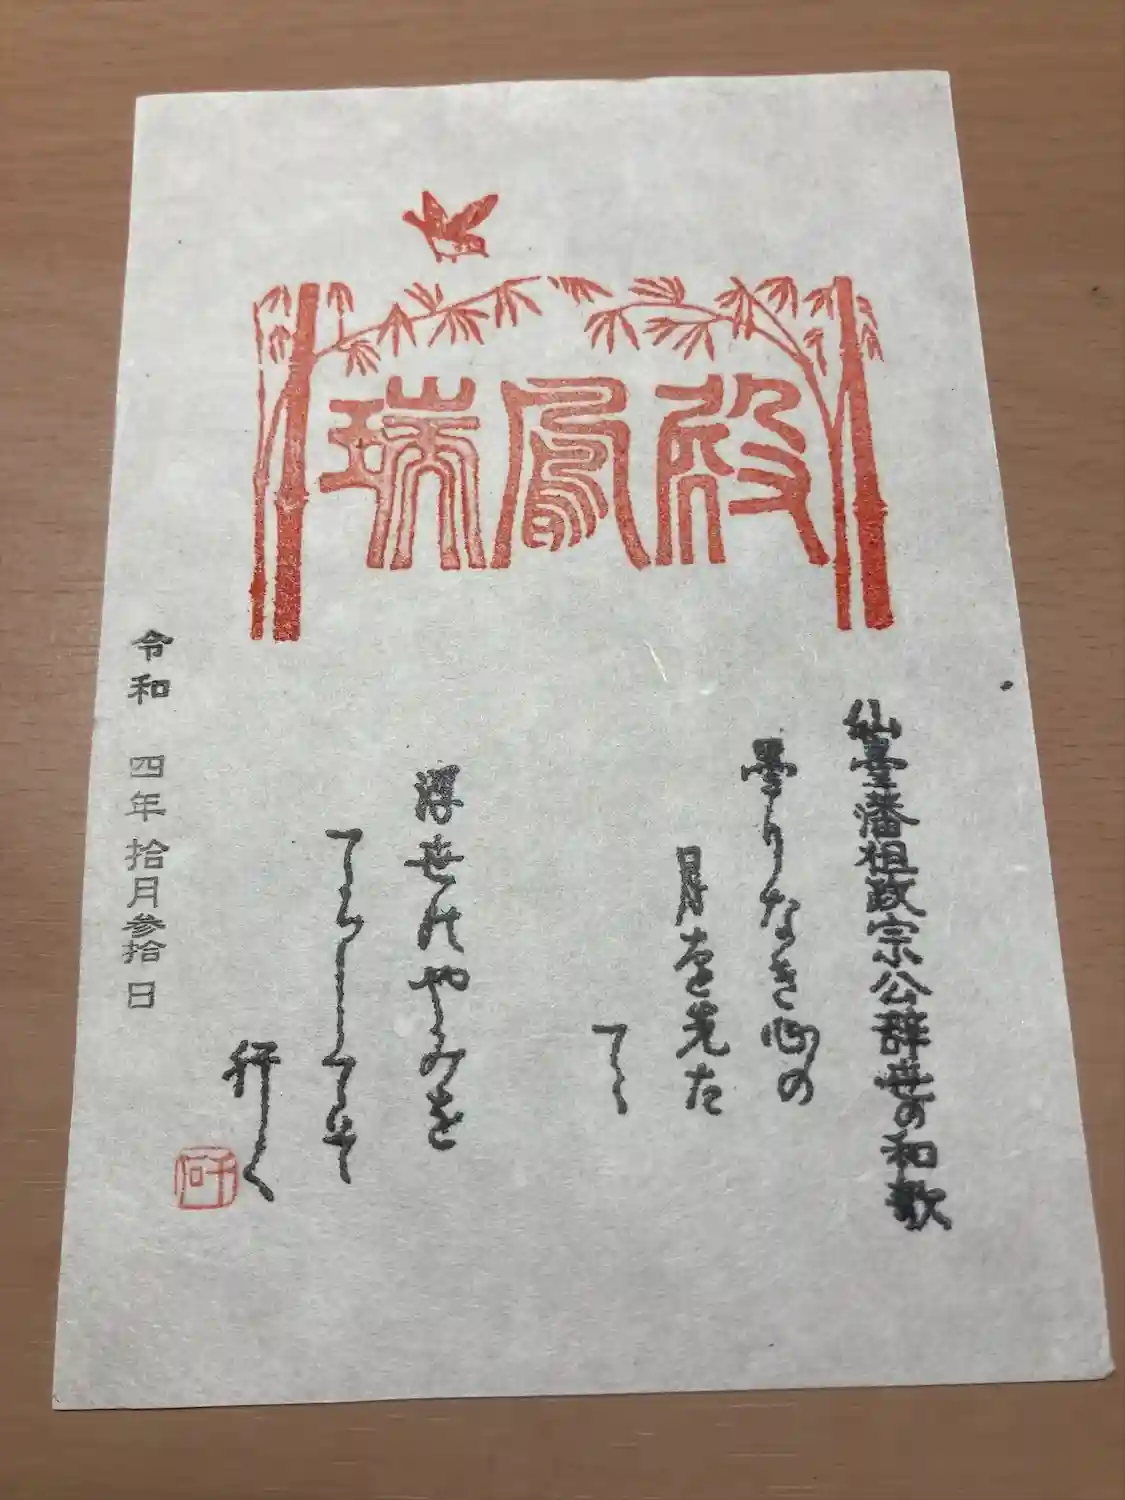 瑞鳳殿
仙臺藩祖政宗公辞世の和歌
曇りなき心の
月を先た
てゝ
浮世のやみを
てらしてそ
行く
令和 四年拾月参拾日